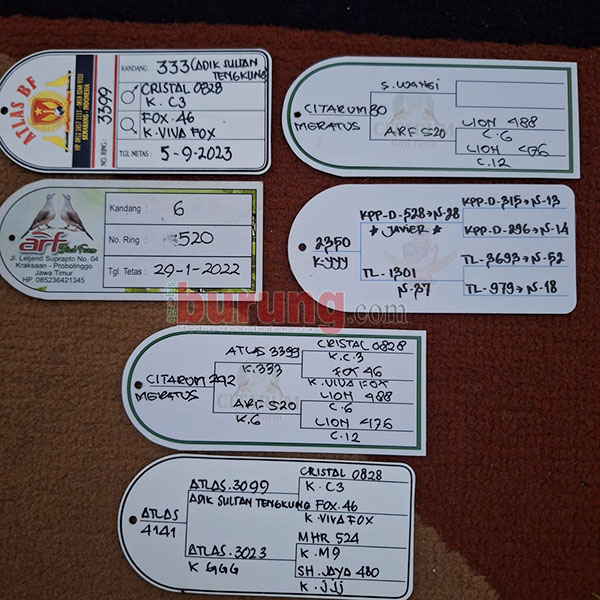 ATLAS BF
HP. 0812 2857 1111 - 0818 0248 9333
SEMARANG - INDONESIA
NO. RING : 3399
KANDANG : 333 (ADIK SULTAN
TENGKUNG
CRISTAL 0828
K. C3
FOX. 46
K. VIVA FOX
TGL NETAS : 5-9-2023
CITARUM 80
MERATUS
S. WANGI
ARF 520
LION 488
C.6
LION 476
C.12
arf
Bird Farm
Jl. Letjend Suprapto No. 04
Kraksaan - Probolinggo
Jawa Timur
HP. 085236421345
Kandang : 6
No. Ring : 520
Tgl. Tetas : 29-1-2022
2350
K-JJJ
KPP-D-528→N-28
* JAVIER *
TL-1301
N-37
KPP-D-315→N-13
KPP-D-296→N-14
TL-3693→N-52
TL-979→N-18
burung.com
CITARUM 292
MERATUS
ATLAS 3399
K.333
ARF 520
K.6
CRISTAL 0828
K.C.3
FOX 46
K.VIVA FOX
LION 488
C.6
LION 476
C.12
ATLAS
4141
ATLAS.3099
ADIK SULTAN TENGKUNG
ATLAS.3023
K GGG
CRISTAL 0828
K. C3
FOX.46
K.VIVA FOX
MHR 524
K. M9
SH. JAYA 480
K. JJJ